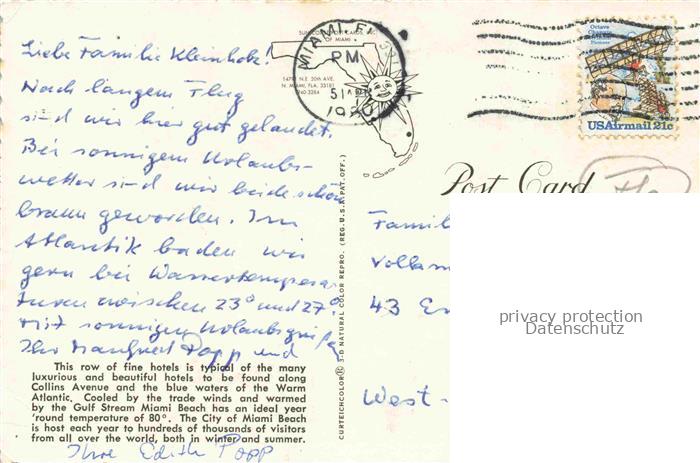 Liebe Familie Kleinholz!
Nach langem Flug
sind wir hier gut gelandet.
Bei sonnigem Urlaubs-
wetter sind wir beide schön
braun geworden. Im
Atlantik baden wir
gern bei Wassertempera-
turen zwischen 23° und 27°.
Mit sonnigen Urlaubsgrüßen
Ihr Manfred Popp und
This row of fine hotels is typical of the many
luxurious and beautiful hotels to be found along
Collins Avenue and the blue waters of the Warm
Atlantic. Cooled by the trade winds and warmed
by the Gulf Stream Miami Beach has an ideal year
'round temperature of 80°. The City of Miami Beach
is host each year to hundreds of thousands of visitors
from all over the world, both in winter and summer.
Ihre Edith Popp
OF MIAMI
N.E. 20th AVE.
N. MIAMI, FLA. 33181
MIAMI FL 331
PM
CURTEICHCOLOR® 3-D NATURAL COLOR REPRO. (REG. U.S.A. PAT. OFF.)
Octave
Chanute
Aviation
Pioneer
USAirmail 21c
Post Card
Famil
43
West-
privacy protection
Datenschutz